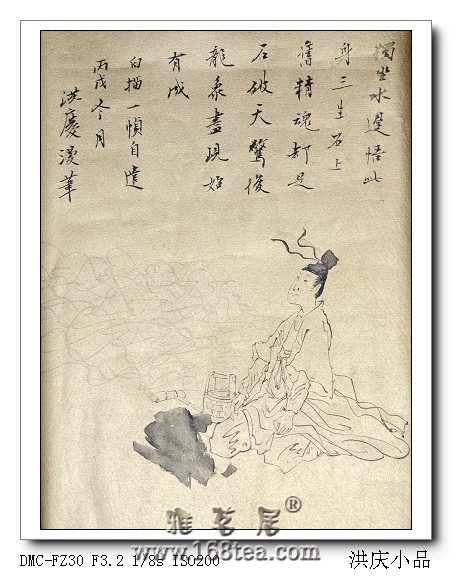 獨坐水邊悟此
身三生石上
舊精魂却是
石破天驚後
龍象盡現始
有成
白描一幀自遣
丙戌冬月
洪慶漫筆
雅茗居®
www.168tea.com
DMC-FZ30 F3.2 1/8s ISO200
洪庆小品